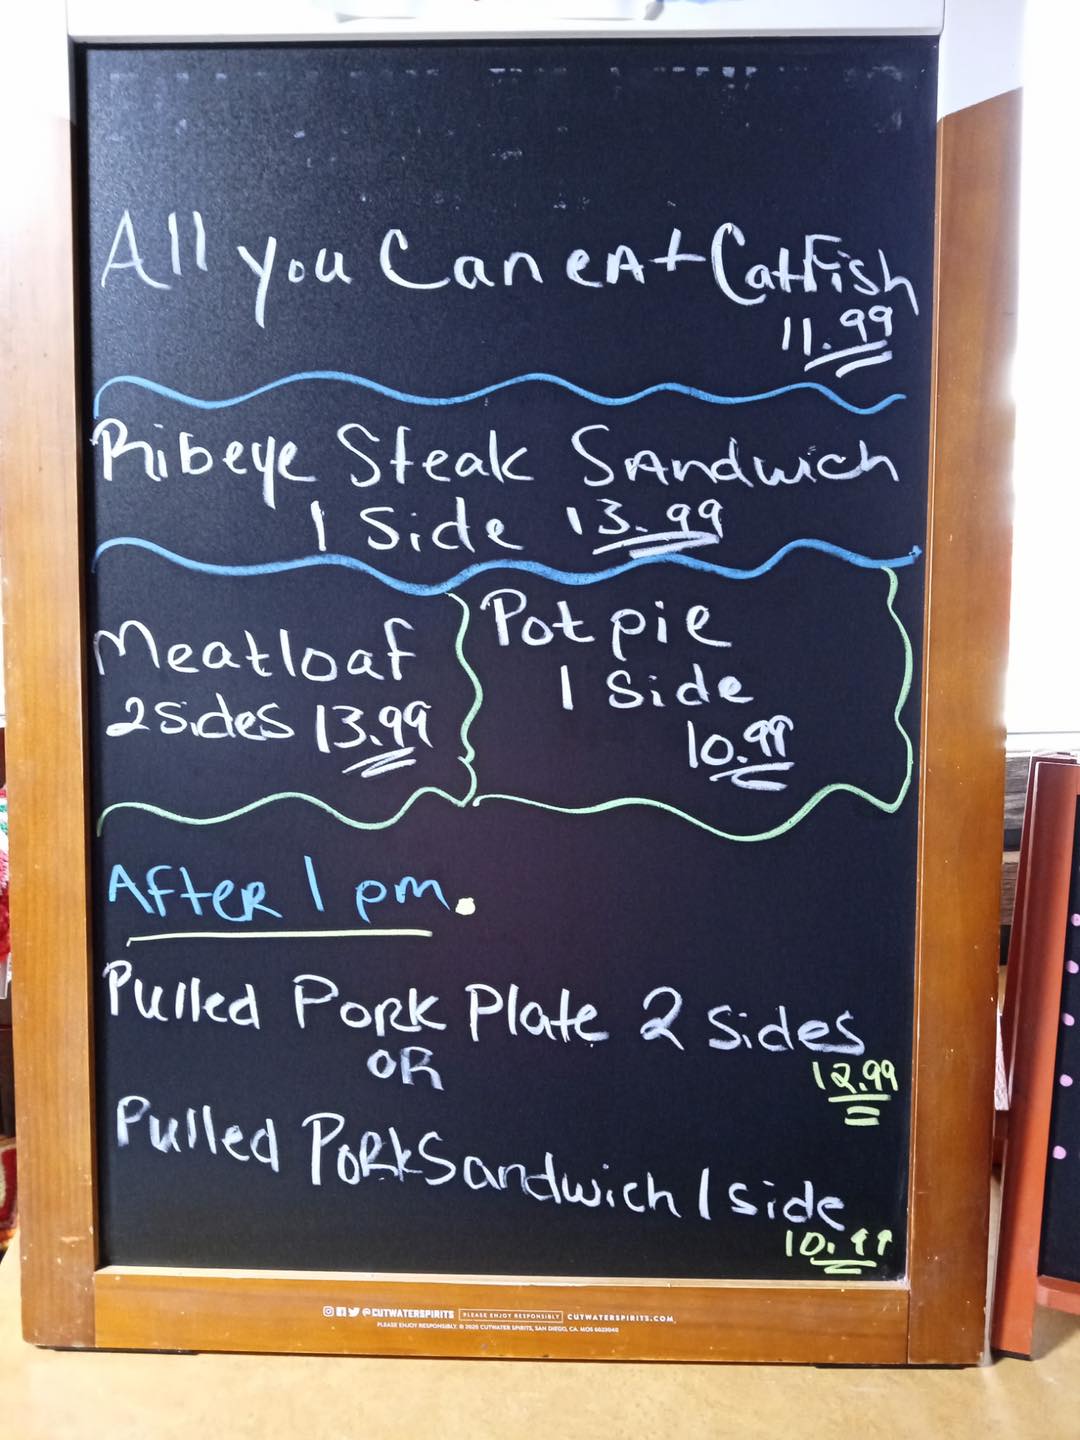 All you Can eAt CatFish
11.99
Ribeye Steak SAndwich
1 Side 13.99
Meatloaf
2 sides 13.99
Pot pie
1 Side
10.99
AfteR 1 pm.
Pulled PORK Plate 2 sides
OR
12.99
Pulled PORK Sandwich 1 side
10.99
@CUTWATERSPIRITS PLEASE ENJOY RESPONSIBLY CUTWATERSPIRITS.COM
PLEASE ENJOY RESPONSIBLY. © 2020 CUTWATER SPIRITS, SAN DIEGO, CA.